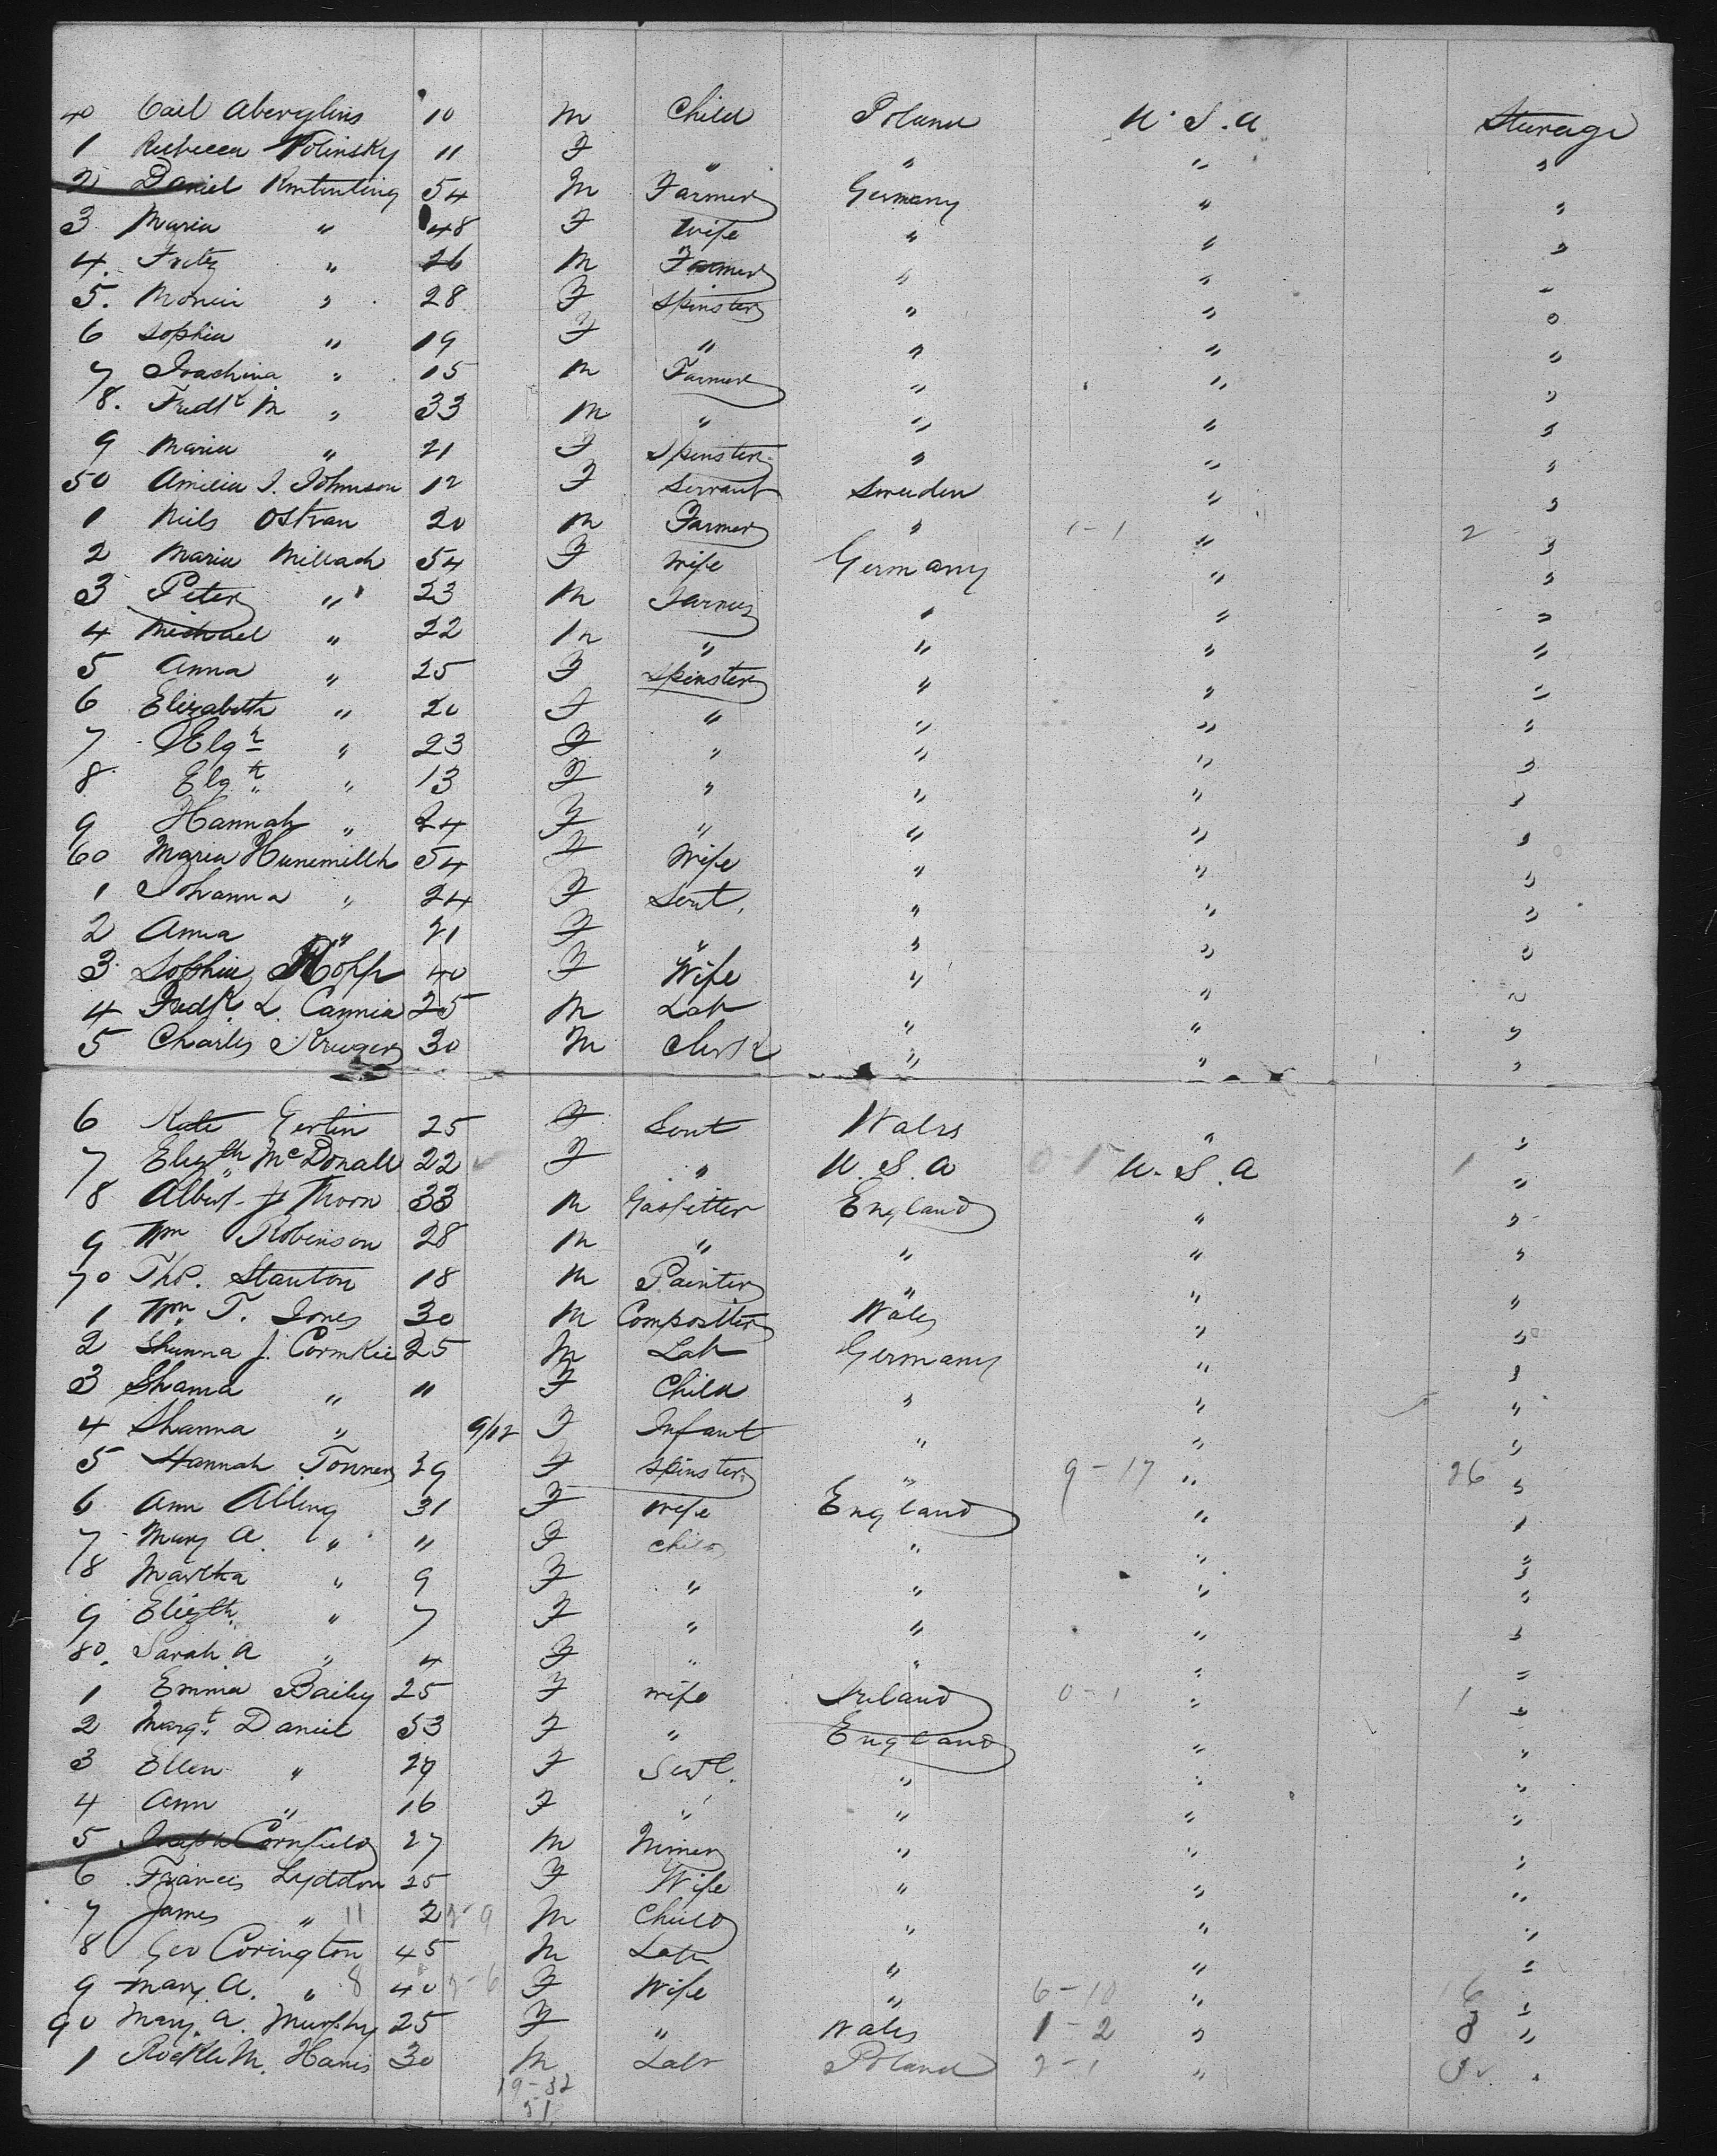 40 Carl Aberglins 10 M Child Poland U.S.A Steerage
1 Rebecca Polinsky 11 F " " " "
2 Daniel 54 M Farmer Germany " "
3 Maria " 48 F Wife " " "
4. Fritz " 26 M Farmer " " "
5. " 28 F Spinster " " "
6 Sophia " 19 F " " " "
7 Joachina " 15 M Farmer " " "
8. Fredk M " 33 M " " " "
9 Maria " 21 F Spinster " " "
50 Amilia J. Johnson 12 F Servant Sweden " "
1 Nils Ostran 20 M Farmer " 1-1 " 2 "
2 Maria Millach 54 F Wife Germany " "
3 Peter " 23 M Farmer " " "
4 Michael " 22 M " " " "
5 Anna " 25 F Spinster " " "
6 Elizabeth " 20 F " " " "
7 " 23 F " " " "
8 " 13 F " " " "
9 Hannah " 24 F " " " "
60 Maria Hunemillh 54 F Wife " " "
1 Johanna " 24 F Servt. " " "
2 Anna " 21 F " " " "
3 Sophia Ropp 40 F Wife " " "
4 Fredk. L. Cannia 25 M Lab " " "
5 Charles Krueger 30 M Clerk " " "
6 Kate Gerlin 25 F Servt Wales " "
7 Elizth McDonall 22 F " U.S.A 0-1 U.S.A 1 "
8 Albert J Thorn 33 M Gasfitter England " "
9 Wm Robinson 28 M " " " "
70 Tho. Stanton 18 M Painter " " "
1 Wm T. Jones 30 M Compositter Wales " "
2 Shanna J. Cormkie 25 M Lab Germany " "
3 Shanna " " F Child " " "
4 Shanna " 9/12 F Infant " " "
5 Hannah Tonner 39 F Spinster " 9-17 " 26 "
6 Ann Alling 31 F Wife England " "
7 Mary A. " " F Child " " "
8 Martha " 9 F " " " "
9 Elizth " 7 F " " " "
80. Sarah A " 4 F " " " "
1 Emma Baily 25 F Wife Ireland 0-1 " 1 "
2 Margt. Daniel 53 F " England " "
3 Ellen " 29 F Servt. " " "
4 Ann " 16 F " " " "
5 Joseph Cornfield 27 M Miner " " "
6 Francis Lyddon 25 F Wife " " "
7 James " 11 2 M Child " " "
8 Geo Covington 45 M Lab " " "
9 Mary A. " 8 40 F Wife " 6-10 " 16 "
90 Mary. A. Murphy 25 F " Wales 1-2 " 3 "
1 M. Harris 30 M Labr Poland 2-1 " "
19-32
51